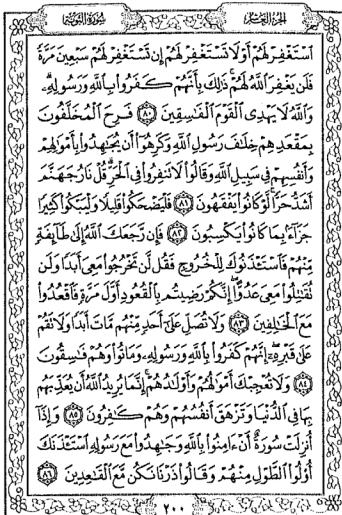 الجزء العاشر
سورة التوبة
ٱسۡتَغۡفِرۡ لَهُمۡ أَوۡ لَا تَسۡتَغۡفِرۡ لَهُمۡ إِن تَسۡتَغۡفِرۡ لَهُمۡ سَبۡعِينَ مَرَّةٗ
فَلَن يَغۡفِرَ ٱللَّهُ لَهُمۡۚ ذَٰلِكَ بِأَنَّهُمۡ كَفَرُواْ بِٱللَّهِ وَرَسُولِهِۦۗ
وَٱللَّهُ لَا يَهۡدِي ٱلۡقَوۡمَ ٱلۡفَٰسِقِينَ ٨٠ فَرِحَ ٱلۡمُخَلَّفُونَ
بِمَقۡعَدِهِمۡ خِلَٰفَ رَسُولِ ٱللَّهِ وَكَرِهُوٓاْ أَن يُجَٰهِدُواْ بِأَمۡوَٰلِهِمۡ
وَأَنفُسِهِمۡ فِي سَبِيلِ ٱللَّهِ وَقَالُواْ لَا تَنفِرُواْ فِي ٱلۡحَرِّۗ قُلۡ نَارُ جَهَنَّمَ
أَشَدُّ حَرّٗاۚ لَّوۡ كَانُواْ يَفۡقَهُونَ ٨١ فَلۡيَضۡحَكُواْ قَلِيلٗا وَلۡيَبۡكُواْ كَثِيرٗا
جَزَآءَۢ بِمَا كَانُواْ يَكۡسِبُونَ ٨٢ فَإِن رَّجَعَكَ ٱللَّهُ إِلَىٰ طَآئِفَةٖ
مِّنۡهُمۡ فَٱسۡتَـٔۡذَنُوكَ لِلۡخُرُوجِ فَقُل لَّن تَخۡرُجُواْ مَعِيَ أَبَدٗا وَلَن
تُقَٰتِلُواْ مَعِيَ عَدُوًّاۖ إِنَّكُمۡ رَضِيتُم بِٱلۡقُعُودِ أَوَّلَ مَرَّةٖ فَٱقۡعُدُواْ
مَعَ ٱلۡخَٰلِفِينَ ٨٣ وَلَا تُصَلِّ عَلَىٰٓ أَحَدٖ مِّنۡهُم مَّاتَ أَبَدٗا وَلَا تَقُمۡ
عَلَىٰ قَبۡرِهِۦٓۖ إِنَّهُمۡ كَفَرُواْ بِٱللَّهِ وَرَسُولِهِۦ وَمَاتُواْ وَهُمۡ فَٰسِقُونَ
٨٤ وَلَا تُعۡجِبۡكَ أَمۡوَٰلُهُمۡ وَأَوۡلَٰدُهُمۡۚ إِنَّمَا يُرِيدُ ٱللَّهُ أَن يُعَذِّبَهُم
بِهَا فِي ٱلدُّنۡيَا وَتَزۡهَقَ أَنفُسُهُمۡ وَهُمۡ كَٰفِرُونَ ٨٥ وَإِذَآ
أُنزِلَتۡ سُورَةٌ أَنۡ ءَامِنُواْ بِٱللَّهِ وَجَٰهِدُواْ مَعَ رَسُولِهِ ٱسۡتَـٔۡذَنَكَ
أُوْلُواْ ٱلطَّوۡلِ مِنۡهُمۡ وَقَالُواْ ذَرۡنَا نَكُن مَّعَ ٱلۡقَٰعِدِينَ ٨٦
٢٠٠